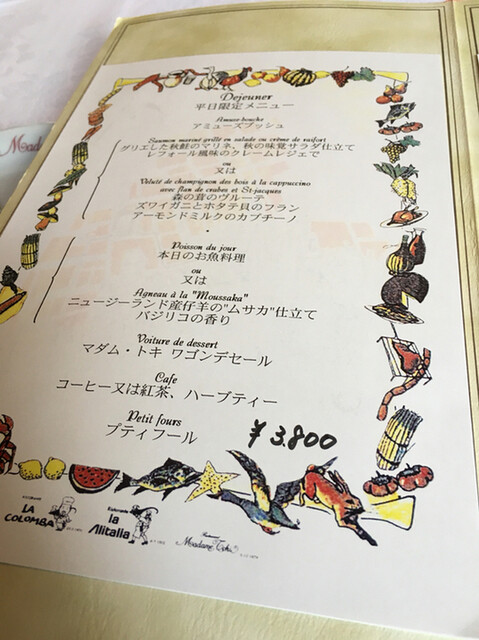 Mada
Dejeuner
平日限定メニュー
Amuse-bouche
アミューズブッシュ
Saumon mariné grillé en salade ou crème de raifort
グリエした秋鮭のマリネ、秋の味覚サラダ仕立て
レフォール風味のクレームレジェで
ou
又は
Velouté de champignon des bois à la cappuccino
avec flan de crabes et St-jacques
森の茸のヴルーテ
ズワイガニとホタテ貝のフラン
アーモンドミルクのカプチーノ
Poisson du jour
本日のお魚料理
ou
又は
Agneau à la "Moussaka"
ニュージーランド産仔羊の"ムサカ"仕立て
バジリコの香り
Voiture de dessert
マダム・トキ ワゴンデセール
Cafe
コーヒー又は紅茶、ハーブティー
Petit fours
プティフール
¥3,800
LA COLOMBA
la Alitalia
Madame Toki